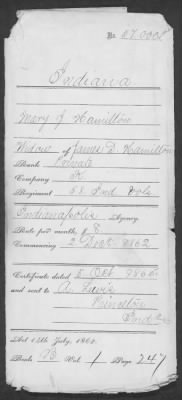 No. 87.000
Indiana
Mary J Hamilton
Widow of James D. Hamilton
Rank Private
Company K
Regiment 58 Ind Vols
Indianapolis Agency
Rate per month, $ 8
Commencing 2 Oct 1862
Certificate dated 5 Oct 1866
and sent to A. Lewis
Princeton
Ind
Act 14th July, 1862.
Book B Vol 1 Page 247